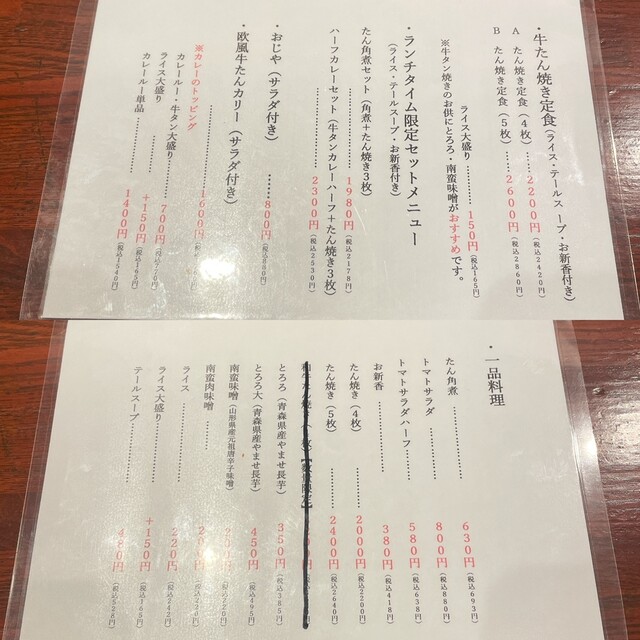 ・牛たん焼き定食（ライス・テールスープ・お新香付き）
A たん焼き定食（４枚）２２００円（税込２４２０円）
B たん焼き定食（５枚）２６００円（税込２８６０円）
ライス大盛り…………１５０円（税込１６５円）
※牛タン焼きのお供にとろろ・南蛮味噌がおすすめです。
・ランチタイム限定セットメニュー
（ライス・テールスープ・お新香付き）
たん角煮セット（角煮＋たん焼き３枚）
１９８０円（税込２１７８円）
ハーフカレーセット（牛タンカレーハーフ＋たん焼き３枚）
２３００円（税込２５３０円）
・おじや（サラダ付き）……８００円（税込８８０円）
・欧風牛たんカリー（サラダ付き）
１６００円
※カレーのトッピング
カレールー・牛タン大盛り……７００円（税込７７０円）
ライス大盛り…………＋１５０円（税込１６５円）
カレールー単品…………１４００円（税込１５４０円）
・一品料理
たん角煮…………６３０円（税込６９３円）
トマトサラダ…………８００円（税込８８０円）
トマトサラダハーフ…………５８０円（税込６３８円）
お新香…………３８０円（税込４１８円）
たん焼き（４枚）…………２０００円（税込２２００円）
たん焼き（５枚）…………２４００円（税込２６４０円）
とろろ（青森県産やませ長芋）３５０円（税込３８５円）
とろろ大（青森県産やませ長芋）４５０円（税込４９５円）
南蛮味噌（山形県産元祖唐辛子味噌）
南蛮肉味噌…………
ライス…………２２０円（税込２４２円）
ライス大盛り…………＋１５０円
テールスープ…………４８０円（税込５２８円）